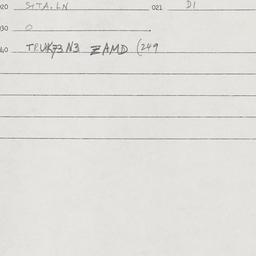 020 STA. LN 021 D1
030 0
040 TRUK73N3 ZAMD (249